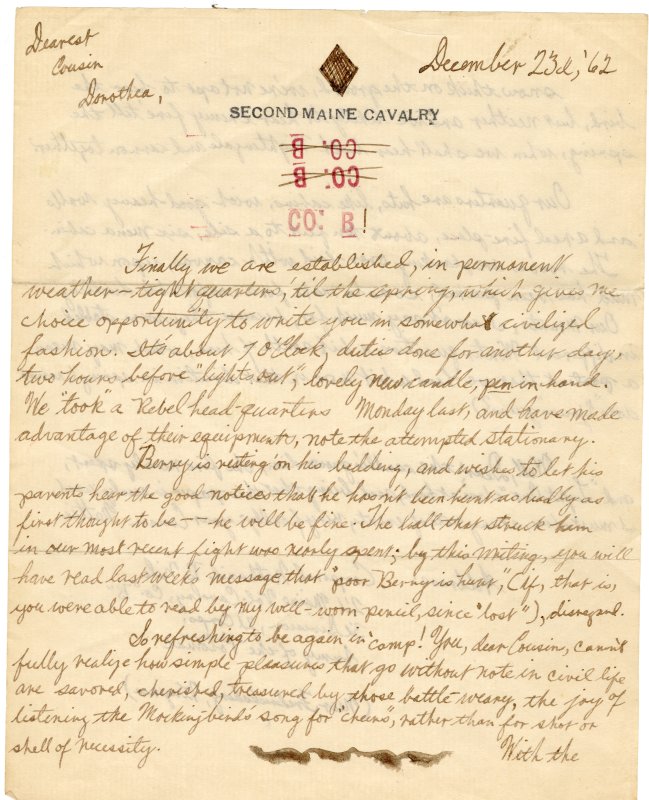 Dearest
Cousin
Dorothea,
December 23d, '62
SECOND MAINE CAVALRY
CO: B
CO: B
CO: B!
Finally we are established, in permanent
weather-tight quarters, 'til the spring, which gives me
choice opportunity to write you in somewhat civilized
fashion. It's about 7 O'Clock, duties done for another day,
two hours before "lights out", lovely new candle, pen in hand.
We "took" a Rebel head quarters Monday last, and have made
advantage of their equipment, note the attempted stationary.
Berry is resting on his bedding, and wishes to let his
parents hear the good notice that he hasn't been hurt as badly as
first thought to be -- he will be fine. The ball that struck him
in our most recent fight was nearly spent; by this writing, you will
have read last week's message that "poor Berry is hurt", (if, that is,
you were able to read by my well-worn pencil, since "lost"), disregard.
So refreshing to be again in "camp"! You, dear Cousin, cannot
fully realize how simple pleasures that go without note in civil life
are savored, cherished, treasured by those battle weary, the joy of
listening the Mockingbird's song for "cheers", rather than for shot or
shell of necessity.
With the